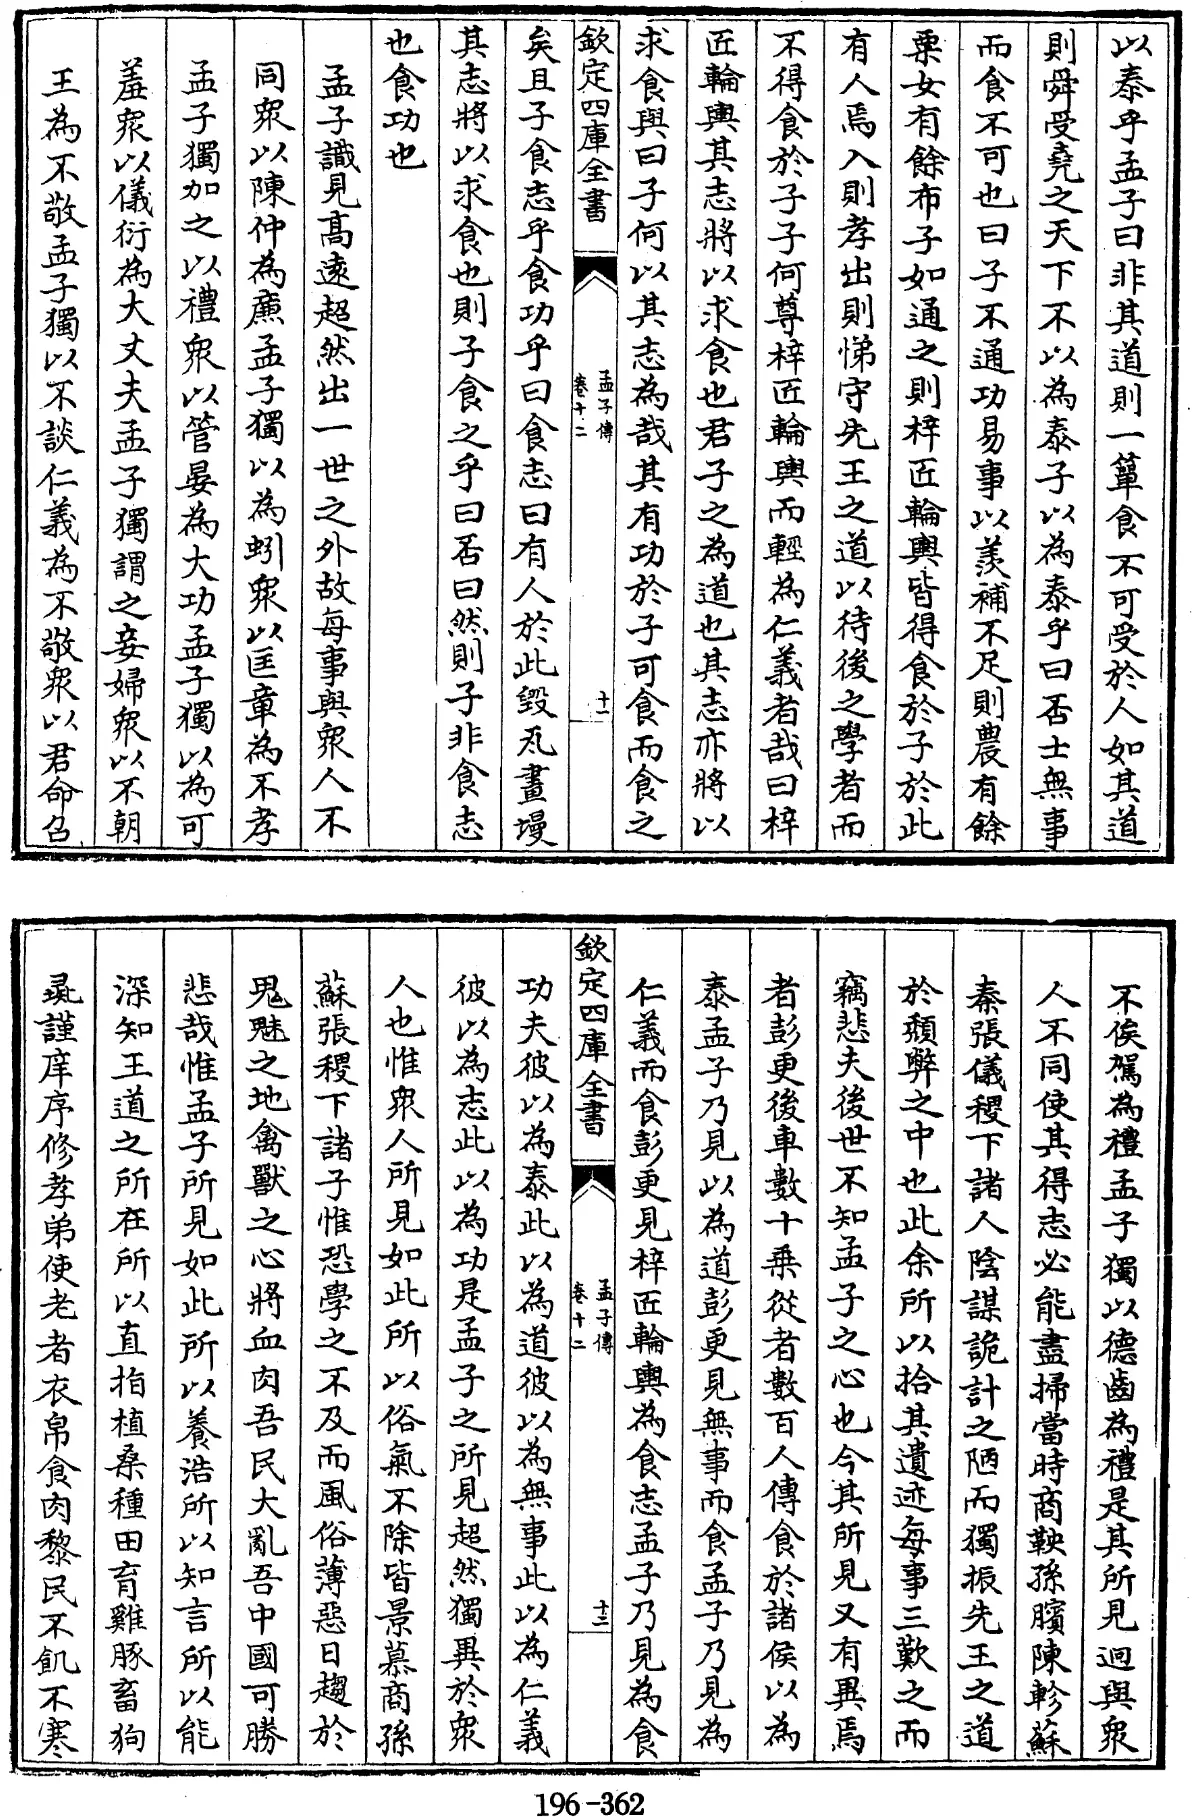 以泰乎孟子曰非其道則一簞食不可受於人如其道
則舜受堯之天下不以為泰子以為泰乎曰否士無事
而食不可也曰子不通功易事以羨補不足則農有餘
粟女有餘布子如通之則梓匠輪輿皆得食於子於此
有人焉入則孝出則悌守先王之道以待後之學者而
不得食於子子何尊梓匠輪輿而輕為仁義者哉曰梓
匠輪輿其志將以求食也君子之為道也其志亦將以
求食與曰子何以其志為哉其有功於子可食而食之
欽定四庫全書
孟子傳
卷十二
十一
矣且子食志乎食功乎曰食志曰有人於此毀瓦畫墁
其志將以求食也則子食之乎曰否曰然則子非食志
也食功也
孟子識見高遠超然出一世之外故每事與衆人不
同衆以陳仲為㢘孟子獨以為蚓衆以匡章為不孝
孟子獨加之以禮衆以管晏為大功孟子獨以為可
羞衆以儀衍為大丈夫孟子獨謂之妾婦衆以不朝
王為不敬孟子獨以不談仁義為不敬衆以君命召
不俟駕為禮孟子獨以德齒為禮是其所見迥與衆
人不同使其得志必能盡掃當時商鞅孫臏陳軫蘇
秦張儀稷下諸人陰謀詭計之陋而獨振先王之道
於頽弊之中也此余所以拾其遺迹每事三歎之而
竊悲夫後世不知孟子之心也今其所見又有異焉
者彭更後車數十乗從者數百人傳食於諸侯以為
泰孟子乃見以為道彭更見無事而食孟子乃見為
仁義而食彭更見梓匠輪輿為食志孟子乃見為食
欽定四庫全書
孟子傳
卷十二
十二
功夫彼以為泰此以為道彼以為無事此以為仁義
彼以為志此以為功是孟子之所見超然獨異於衆
人也惟衆人所見如此所以俗氣不除皆景慕商孫
蘇張稷下諸子惟恐學之不及而風俗薄惡日趨於
鬼魅之地禽獸之心將血肉吾民大亂吾中國可勝
悲哉惟孟子所見如此所以養浩所以知言所以能
深知王道之所在所以直指植桑種田育雞豚畜狗
彘謹庠序修孝弟使老者衣帛食肉黎民不飢不寒
196-362